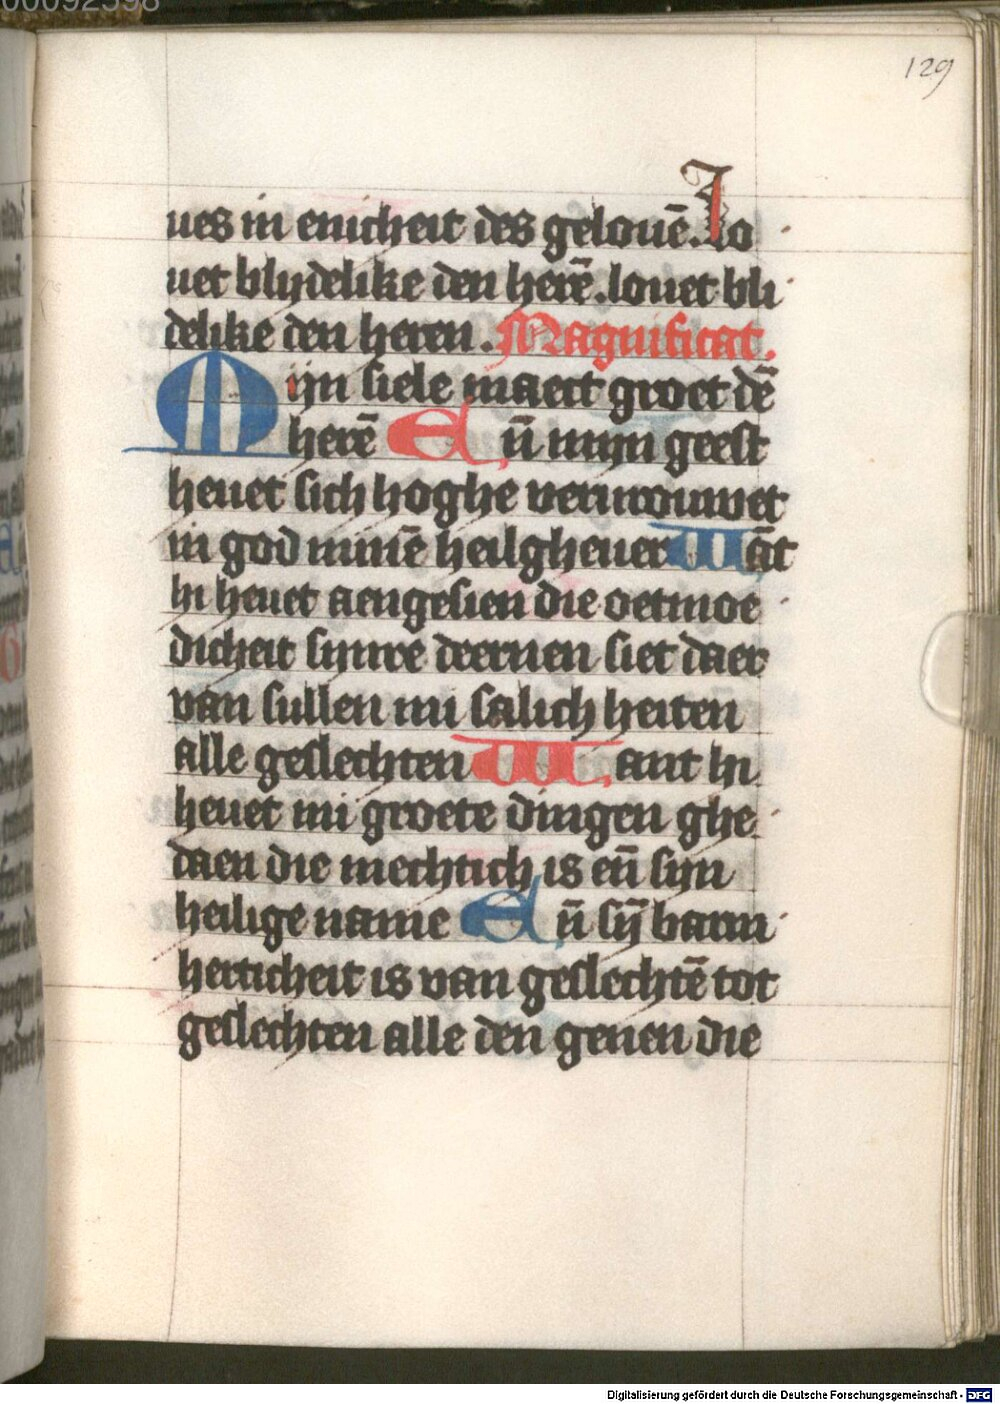 00092598
129
ues in enicheit des gelouē. Lo
uet blydelike den herē. louet bli
delike den heren. Magnificat.
Mijn siele maect groet dē
herē En̄ mijn geest
heuet sich hoghe verurouwet
in god minē heilgheuer Wāt
hi heuet aengesien die oetmoe
dicheit synre deernen siet daer
van sullen mi salich heiten
alle geslechten Want hi
heuet mi groete dingen ghe
daen die mechtich is en̄ syn
heilige name En̄ sȳ barm
herticheit is van geslechtē tot
geslechten alle den genen die
Digitalisierung gefördert durch die Deutsche Forschungsgemeinschaft - DFG